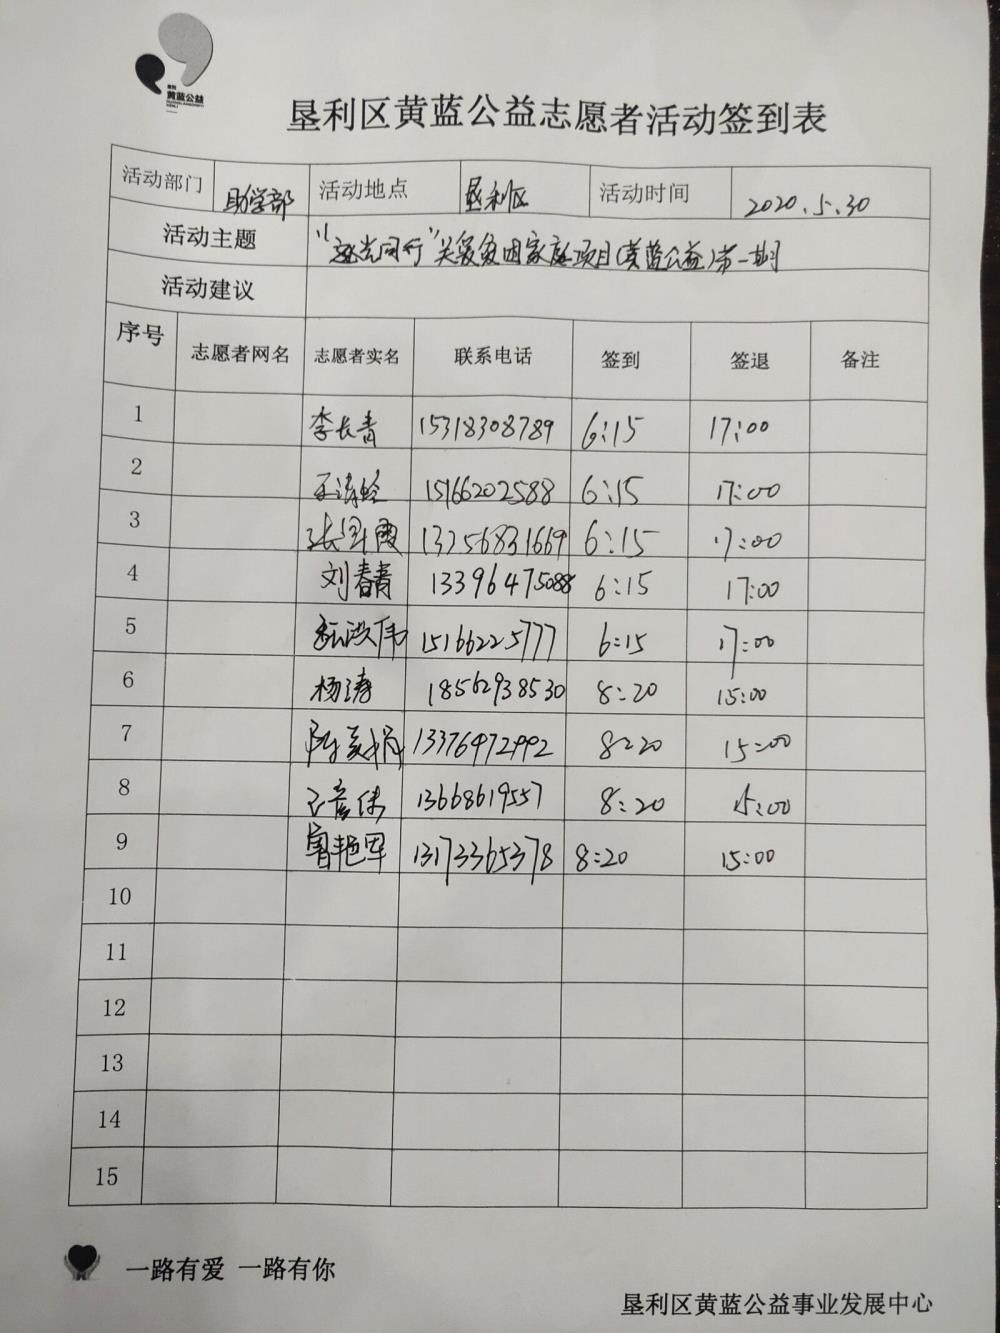 黄蓝公益
垦利区黄蓝公益志愿者活动签到表
活动部门 助学部 活动地点 垦利区 活动时间 2020.5.30
活动主题 "逐光同行"关爱贫困家庭项目(黄蓝公益)第一期
活动建议
序号 志愿者网名 志愿者实名 联系电话 签到 签退 备注
1 李长青 15318308789 6:15 17:00
2 15166202588 6:15 17:00
3 13256831669 6:15 17:00
4 刘春青 13396475088 6:15 17:00
5 15166225777 6:15 17:00
6 杨涛 18562938530 8:20 15:00
7 13376472992 8:20 15:00
8 13668619557 8:20 15:00
9 13173365378 8:20 15:00
10
11
12
13
14
15
一路有爱 一路有你
垦利区黄蓝公益事业发展中心